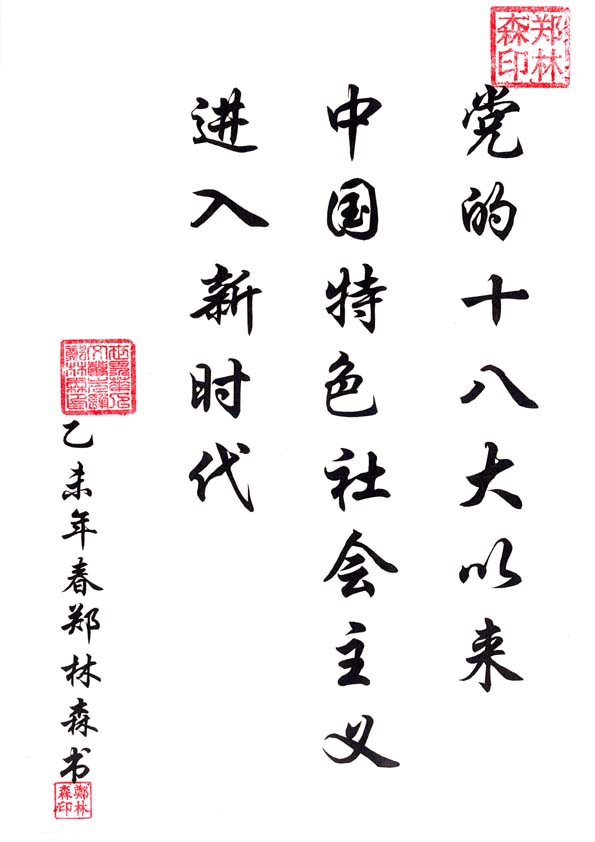 郑林森印
党的十八大以来
中国特色社会主义
进入新时代
乙未年春郑林森书
鄭林森印